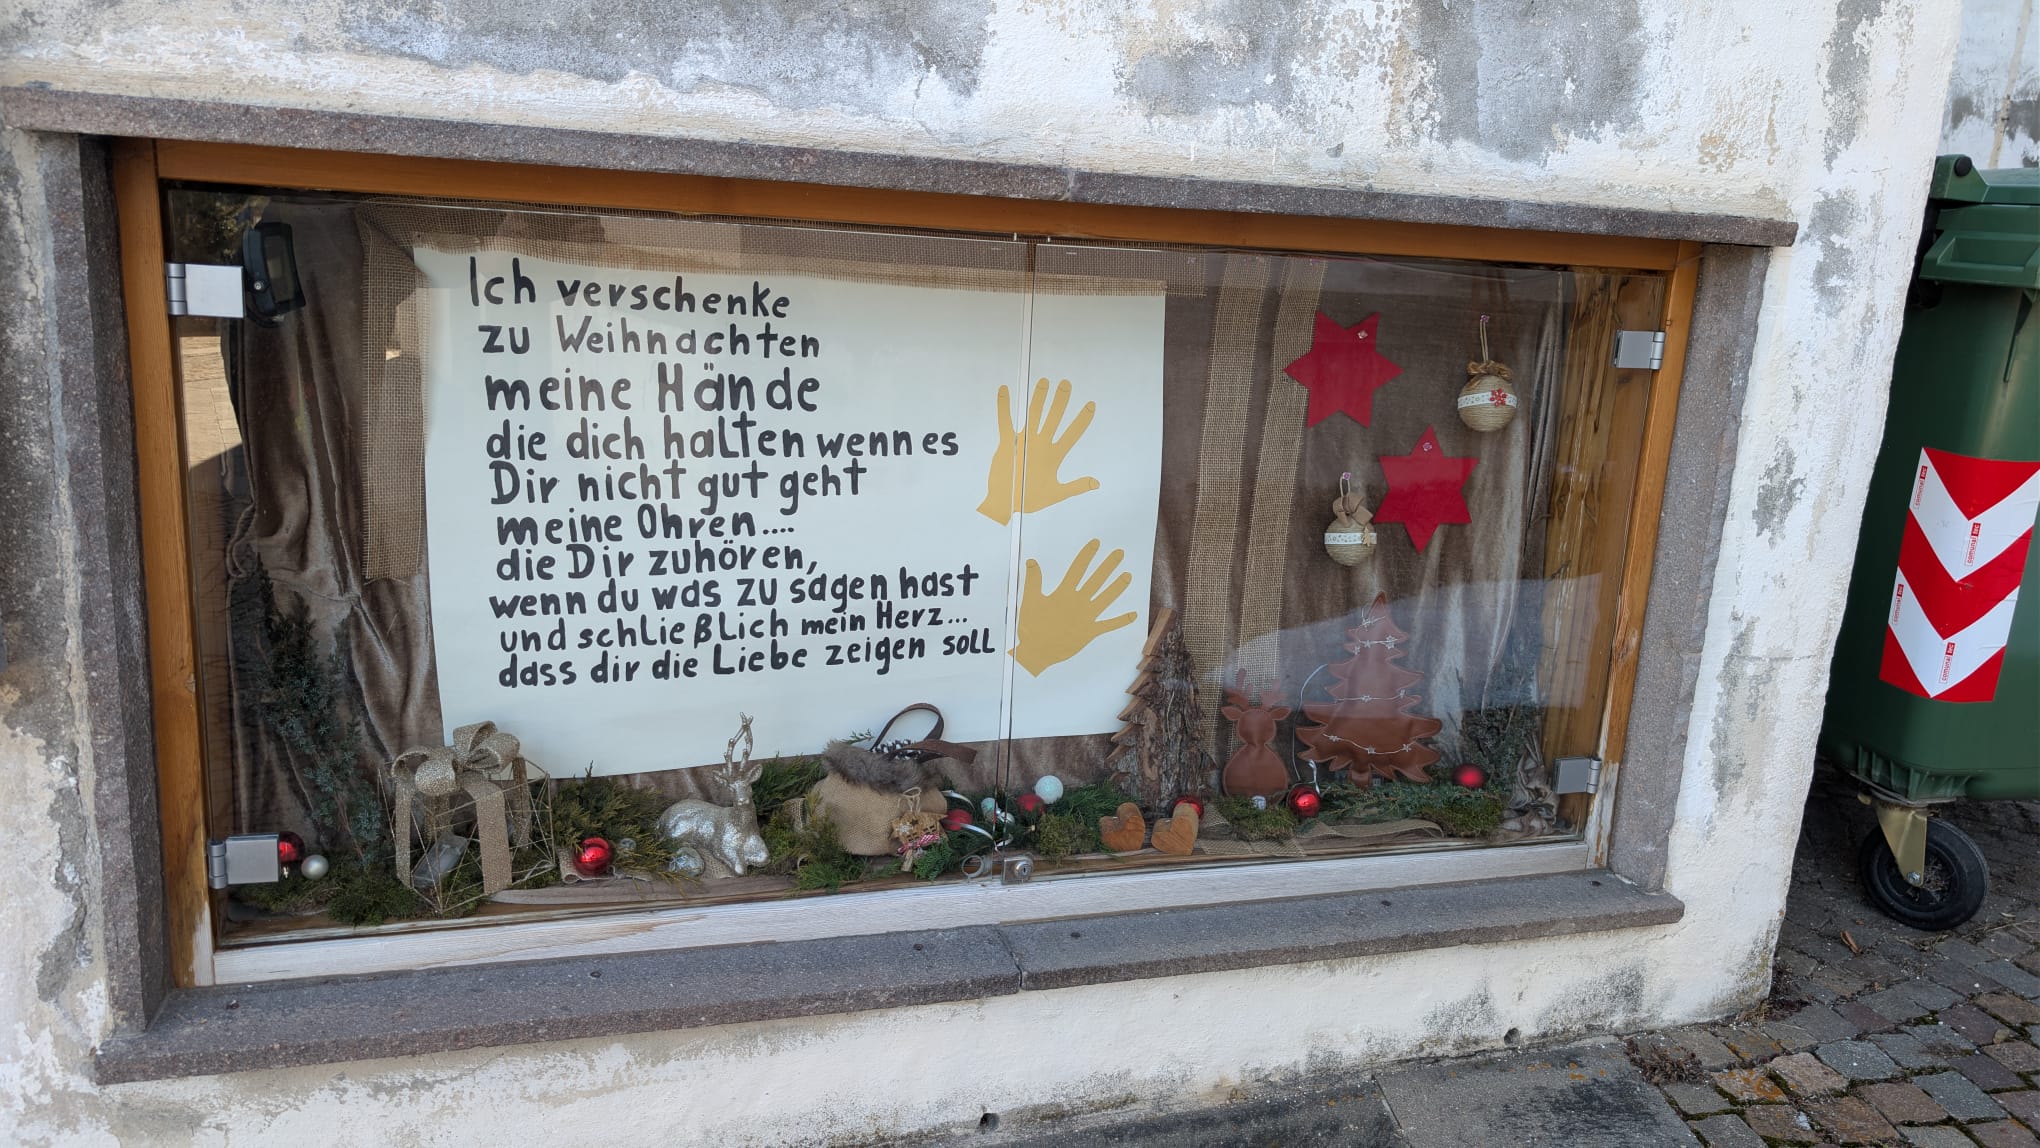 Ich verschenke
zu Weihnachten
meine Hände
die dich halten wenn es
Dir nicht gut geht
meine Ohren....
die Dir zuhören,
wenn du was zu sagen hast
und schließlich mein Herz...
dass dir die Liebe zeigen soll